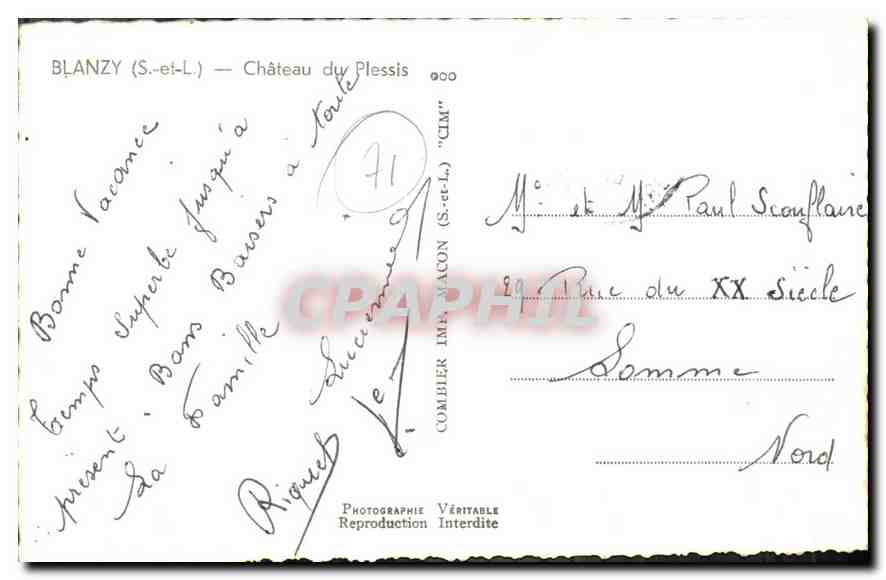 BLANZY (S.-et-L.) — Château du Plessis
900
Bonne Vacance
Temps superbe jusqu'à
présent. Bons Baisers à toute
La Famille
Riquet
71
COMBIER IMP. MACON (S.-et-L.) "CIM"
CPAPHIL
Mr et Mme Paul Scouflaire
29 Rue du XX Siècle
Somme
Nord
PHOTOGRAPHIE VÉRITABLE
Reproduction Interdite